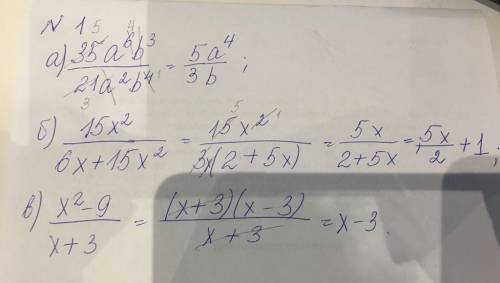 № 1
а) 35a⁶b³ / 21a²b⁴ = 5a⁴ / 3b ;
б) 15x² / 6x+15x² = 15x² / 3x(2+5x) = 5x / 2+5x = 5x / 2 + 1 ;
в) x²-9 / x+3 = (x+3)(x-3) / x+3 = x-3.